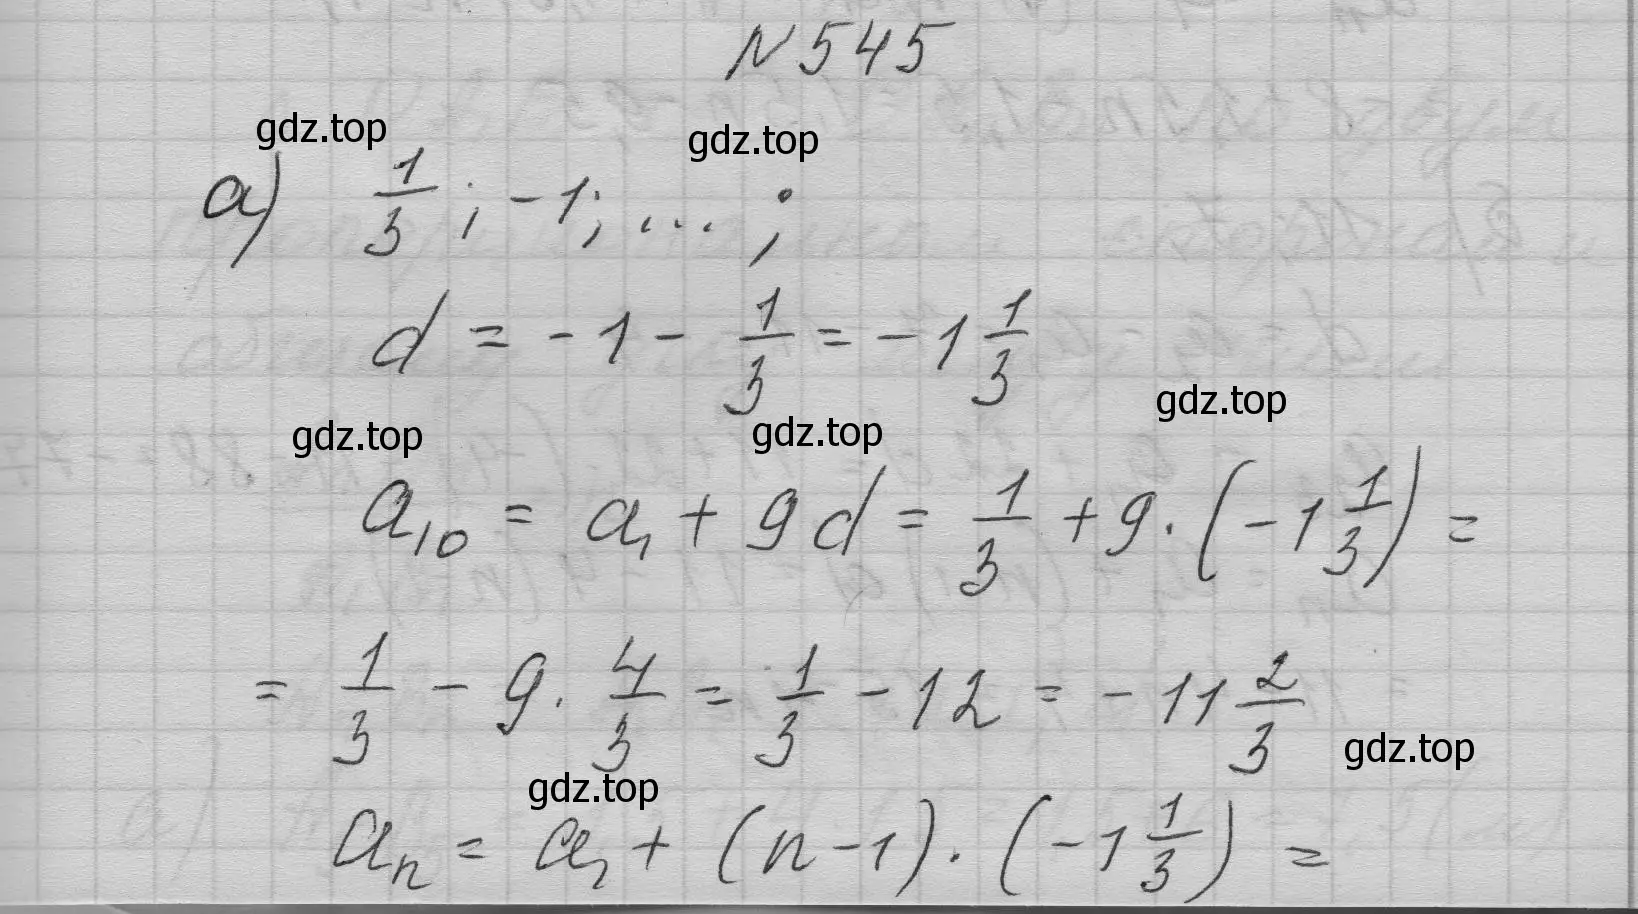 N 545
gdz.top
gdz.top
а) 1/3; -1; ... ;
d = -1 - 1/3 = -1 1/3
gdz.top
gdz.top
gdz.top
a₁₀ = a₁ + 9d = 1/3 + 9 · (-1 1/3) =
= 1/3 - 9 · 4/3 = 1/3 - 12 = -11 2/3
gdz.top
gdz.top
aₙ = a₁ + (n-1) · (-1 1/3) =